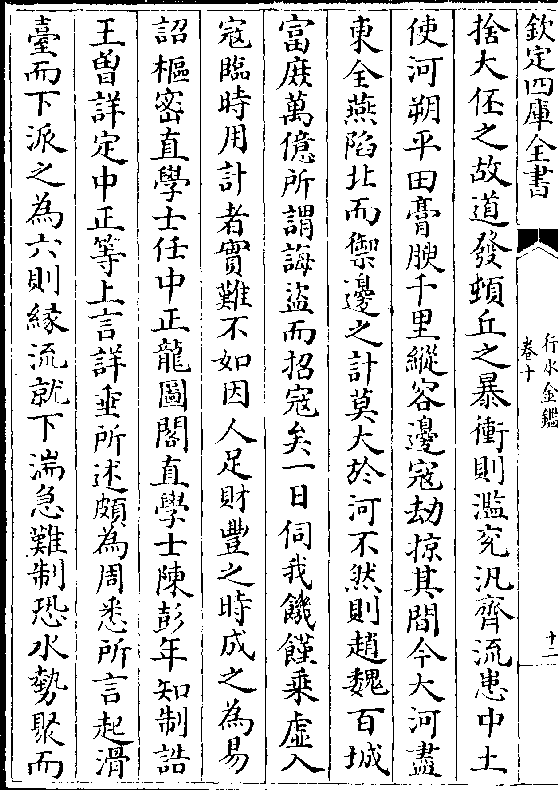 欽定四庫全書
行水金鑑
卷十
十二
捨大伾之故道發頓丘之暴衝則濫兖汎齊流患中土
使河朔平田膏腴千里縱容邊寇劫掠其間今大河盡
東全燕陷北而禦邊之計莫大於河不然則趙魏百城
富庶萬億所謂誨盜而招寇矣一日伺我饑饉乘虛入
寇臨時用計者實難不如因人足財豐之時成之為易
詔樞密直學士任中正龍圖閣直學士陳彭年知制誥
王曾詳定中正等上言詳垂所述頗為周悉所言起滑
臺而下派之為六則緣流就下湍急難制恐水勢聚而